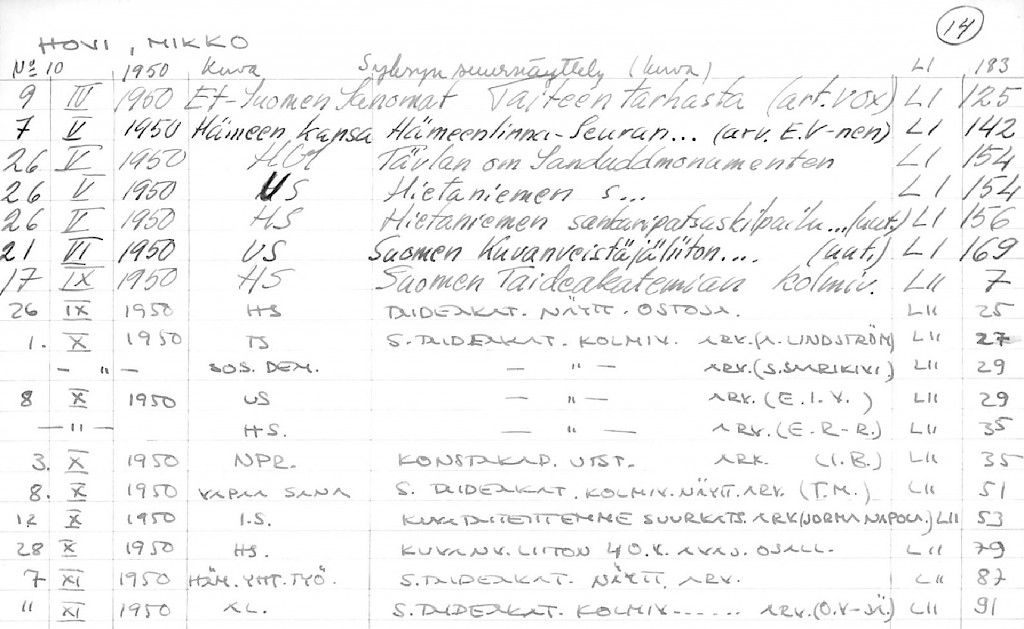 14
HOVI, MIKKO
No 10 1950 Kuva Syksyn suurnäyttely (kuva) LI 183
9 IV 1950 Et-Suomen Sanomat Taiteen tarhasta (art. vox) LI 125
7 V 1950 Hämeen kansa Hämeenlinna-Seuran... (arv. E.V-nen) LI 142
26 V 1950 Tävlan om Sanduddmonumenten LI 154
26 V 1950 US Hietaniemen s... LI 154
26 V 1950 HS Hietaniemen sankaripatsaskilpailu...(uut.) LI 156
21 VI 1950 US Suomen Kuvanveistäjäliiton.... (uut.) LI 169
17 IX 1950 HS Suomen Taideakatemian kolmiv. LII 7
26 IX 1950 HS TAIDEAKAT. NÄYTT. OSTOJA. LII 25
1. X 1950 TS S. TAIDEAKAT. KOLMIV. ARV.(A. LINDSTRÖM) LII 27
— " — SOS. DEM. — " — ARV.(S. SAARIKIVI.) LII 29
8 X 1950 US — " — ARV.(E.I.V.) LII 29
— " — HS. — " — ARV.(E.R-R.) LII 35
3. X 1950 NPR. KONSTAKAD. UTST. ARK. (I.B.) LII 35
8. X 1950 VAPAA SANA S. TAIDEAKAT. KOLMIV. NÄYTT. ARV. (T.M.) LII 51
12 X 1950 I.S. KUVATAITEITTEMME SUURKATS. ARV(JORMA NAPOLA.) LII 53
28 X 1950 HS. KUVANV. LIITON 40.V. AVAJ. OSALL. LII 79
7 XI 1950 HÄM. YHT. TYÖ. S. TAIDEAKAT. NÄYTT. ARV. LII 87
" XI 1950 AL. S. TAIDEAKAT. KOLMIV------ ARV.(O.V-JÄ.) LII 91